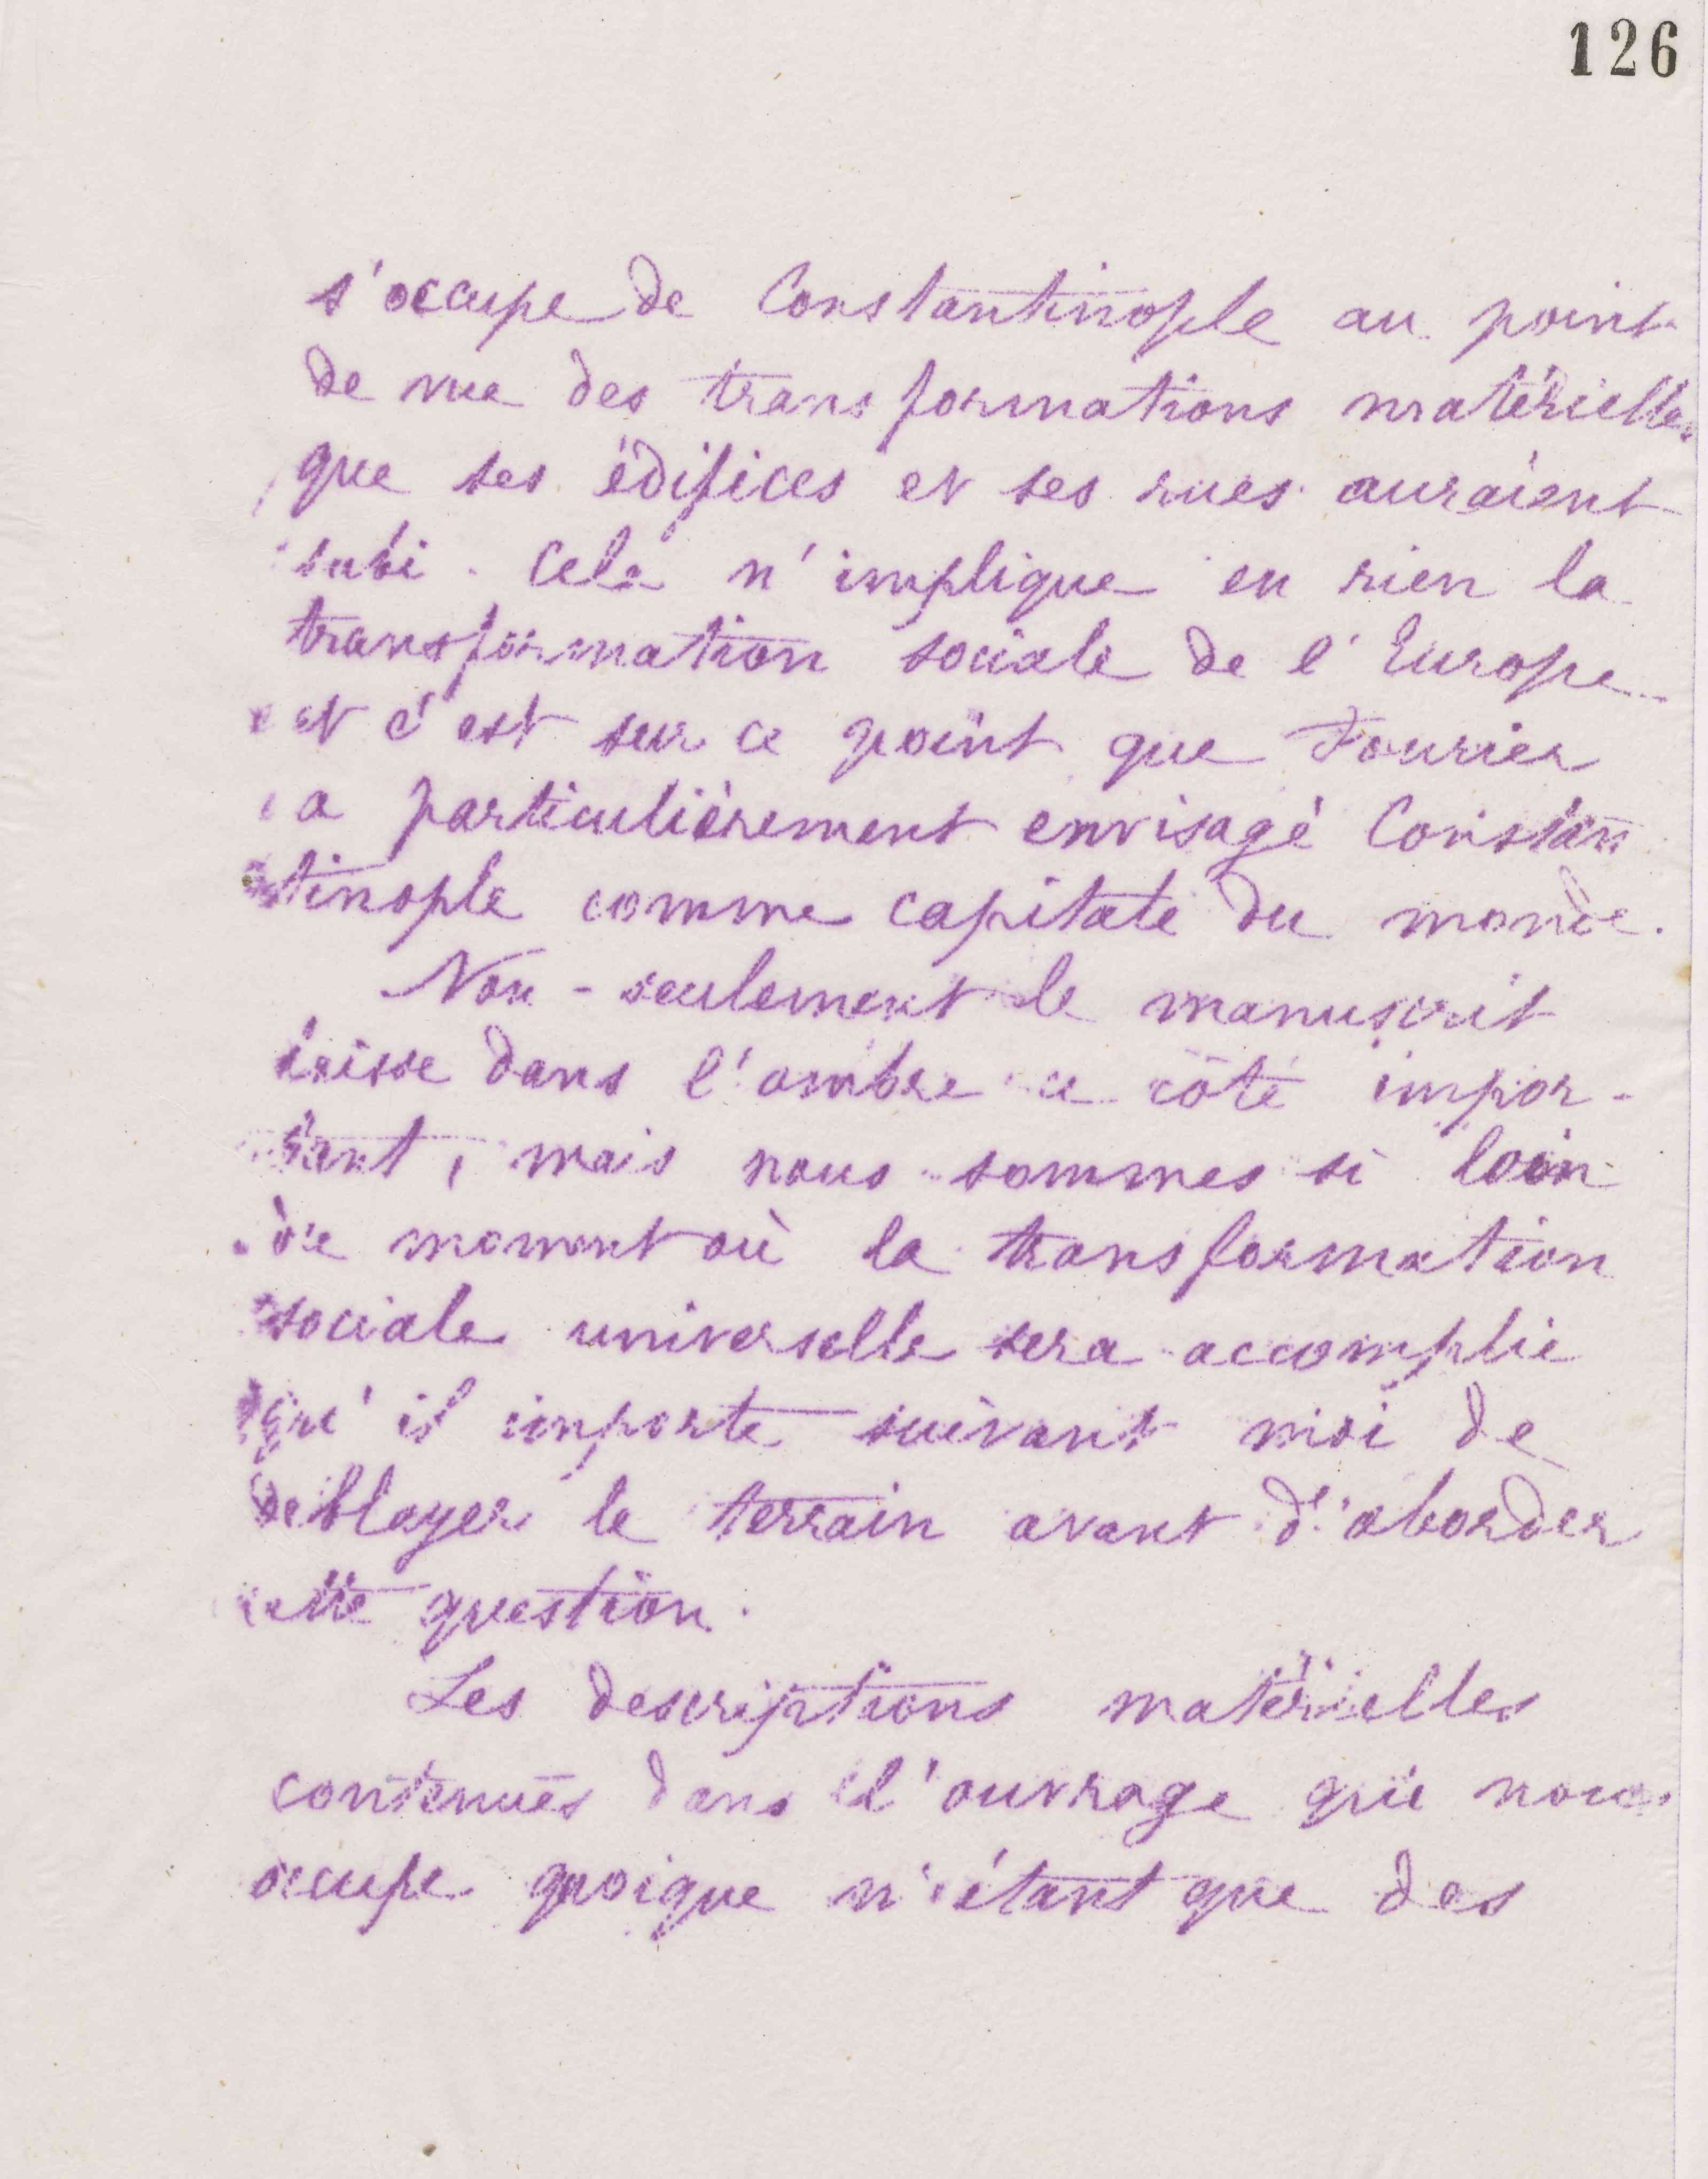 126
s'occupe de Constantinople au point
de vue des transformations matérielles
que ses édifices et ses rues auraient
subi. Cela n'implique en rien la
transformation sociale de l'Europe
et c'est sur ce point que Fourier
a particulièrement envisagé Constan
tinople comme capitale du monde.
Non-seulement le manuscrit
laisse dans l'ombre ce côté impor-
tant, mais nous sommes si loin
du moment où la transformation
sociale universelle sera accomplie
qu'il importe suivant moi de
deblayer le terrain avant d'aborder
cette question.
Les descriptions matérielles
contenues dans l'ouvrage qui nous
occupe quoique n'étant que des